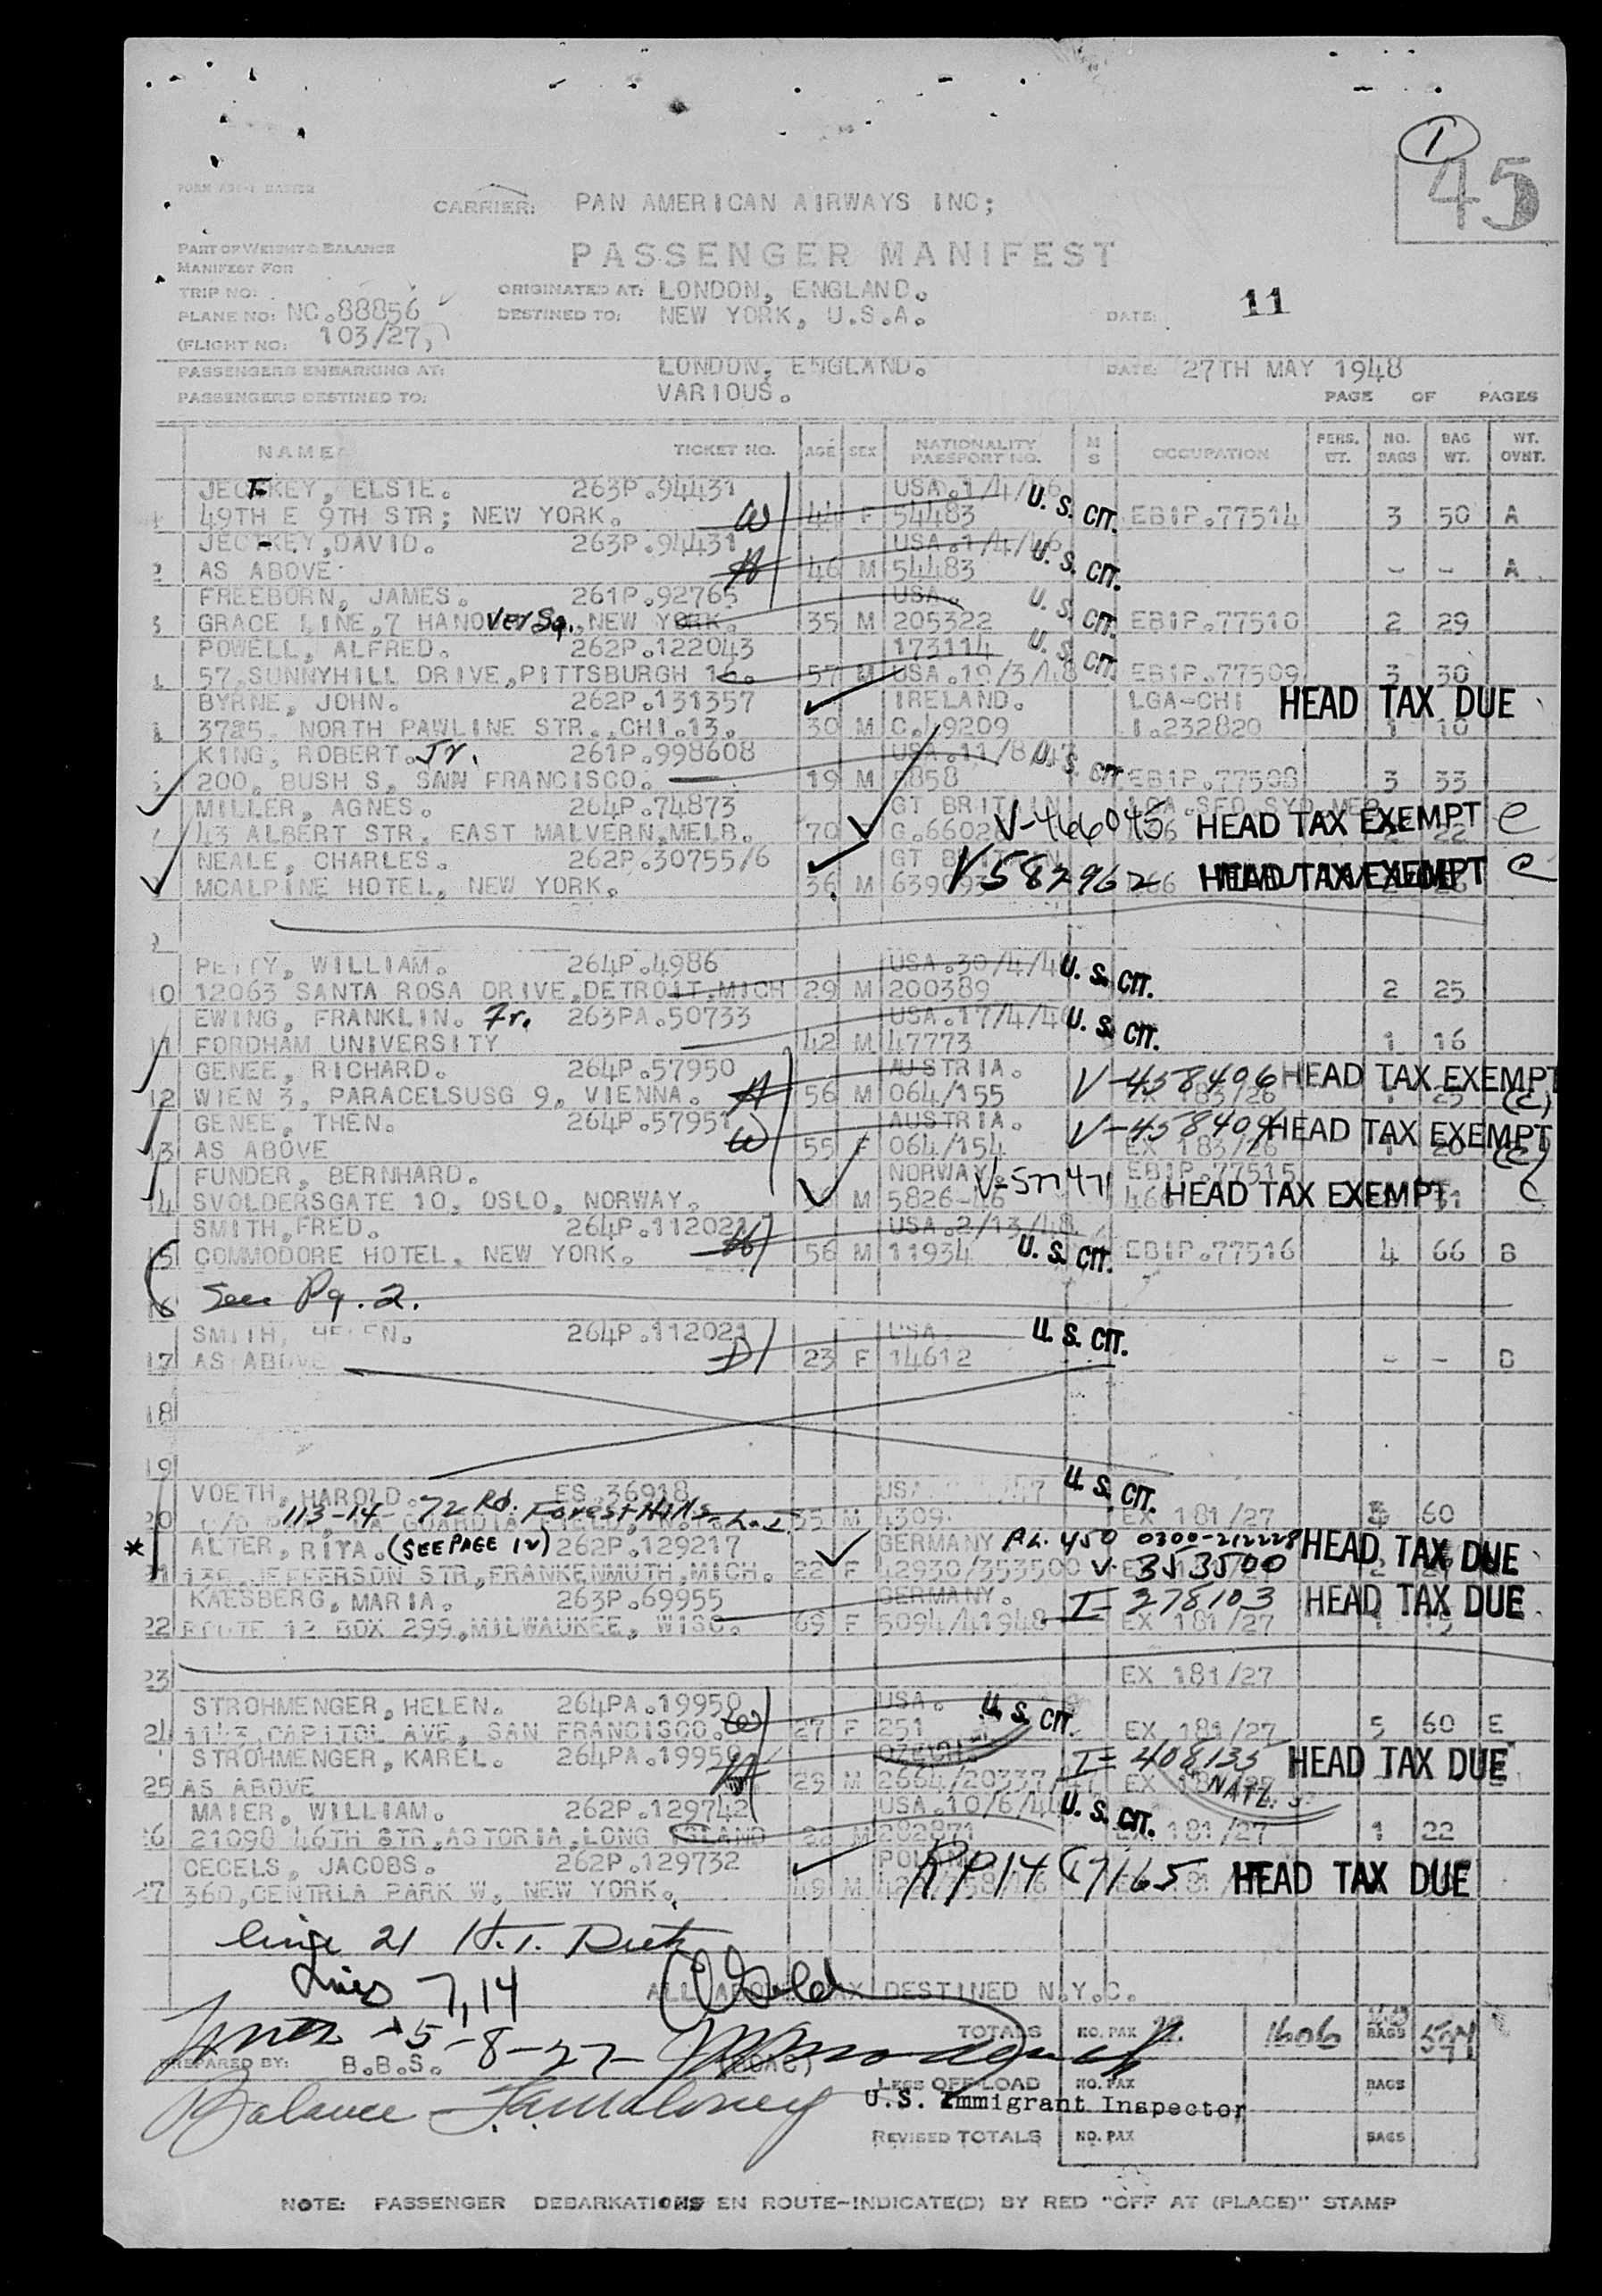 1
45
FORM
CARRIER: PAN AMERICAN AIRWAYS INC;
PART OF WEIGHT & BALANCE
MANIFEST FOR
PASSENGER MANIFEST
TRIP NO:
ORIGINATED AT: LONDON, ENGLAND.
11
PLANE NO: NC.88856
DESTINED TO: NEW YORK, U.S.A.
DATE:
(FLIGHT NO: 103/27,
PASSENGERS EMBARKING AT: LONDON, ENGLAND.
DATE: 27TH MAY 1948
PASSENGERS DESTINED TO: VARIOUS.
PAGE OF PAGES
NAME TICKET NO. AGE SEX NATIONALITY PASSPORT NO. M S OCCUPATION PERS. WT. NO. BAGS BAG WT. WT. OVNT.
ELSIE. 263P.94431 U.S. CIT.
49TH E 9TH STR; NEW YORK. W F 54483 EBIP.77514 3 50 A
DAVID. 263P.94431 USA.1/4/46 U.S. CIT.
2 AS ABOVE H 46 M 54483 - - A
FREEBORN, JAMES. 261P.92765 USA. U.S. CIT.
GRACE LINE,7 HANOVER Sq., NEW YORK. 35 M 205322 EBIP.77510 2 29
POWELL, ALFRED. 262P.122043 173114 U.S. CIT.
57,SUNNYHILL DRIVE,PITTSBURGH 16. 57 M USA.19/3/48 EBIP.77509 3 30
BYRNE, JOHN. 262P.131357 IRELAND. LGA-CHI HEAD TAX DUE
NORTH PAWLINE STR.,CHI.13. 30 M C.L9209 I.232820 1 10
KING, ROBERT. Jr. 261P.998608 U.S. CIT.
200, BUSH S, SANN FRANCISCO. 19 M 5858 EBIP.77508 3 33
MILLER, AGNES. 264P.74873 GT BRITAIN V-466045 HEAD TAX EXEMPT C
43 ALBERT STR, EAST MALVERN,MELB. 70 22
NEALE, CHARLES. 262P.30755/6 GT BRITAIN V582962 HEAD TAX EXEMPT C
MCALPINE HOTEL, NEW YORK. 36 M
9
PETTY, WILLIAM. 264P.4986 USA.30/4/4 U.S. CIT.
10 12063 SANTA ROSA DRIVE,DETROIT,MICH 29 M 200389 2 25
EWING, FRANKLIN. Jr. 263PA.50733 USA.17/4/4 U.S. CIT.
11 FORDHAM UNIVERSITY 42 M 47773 1 16
GENEE, RICHARD. 264P.57950 AUSTRIA. V-458406 HEAD TAX EXEMPT
12 WIEN 3, PARACELSUSG 9, VIENNA. H 56 M 064/155 EX 183/26 (C)
GENEE, THEN. 264P.57951 AUSTRIA. HEAD TAX EXEMPT
13 AS ABOVE W 55 F 064/154 EX 183/26 (C)
FUNDER, BERNHARD. NORWAY. V-577471 EBIP.77515
14 SVOLDERSGATE 10, OSLO, NORWAY. M 5826-46 HEAD TAX EXEMPT C
SMITH,FRED. 264P.112021 USA.2/13/48
15 COMMODORE HOTEL, NEW YORK. H 56 M 11934 U.S. CIT. EBIP.77516 4 66 B
16 See Pg. 2.
SMITH, HELEN. 264P.112021 USA. U.S. CIT.
17 AS ABOVE D 23 F 14612 - - B
18
19
VOETH, HAROLD. ES.36918 USA U.S. CIT.
20 113-14-72 Rd. Forest Hills L.I. 35 M 4309. EX 181/27 60
* ALTER, RITA. (SEE PAGE 12) 262P.129217 GERMANY 0300-212228 HEAD TAX DUE
21 JEFFERSON STR,FRANKENMUTH,MICH. 22 F 42930/353500 V-353500
KAESBERG, MARIA. 263P.69955 GERMANY. I-278103 HEAD TAX DUE
22 ROUTE 12 BOX 299,MILWAUKEE, WISC. 69 F 5094/41948 EX 181/27
23 EX 181/27
STROHMENGER, HELEN. 264PA.19950 USA. U.S. CIT.
24 CAPITOL AVE, SAN FRANCISCO. W 27 F 251 EX 181/27 5 60 E
STROHMENGER, KAREL. 264PA.19950 CZECH. I-408135 HEAD TAX DUE
25 AS ABOVE H 29 M 2664/20337 NATL.
MAIER, WILLIAM. 262P.129742 USA.10/6/4 U.S. CIT.
26 21098 46TH STR,ASTORIA,LONG ISLAND 22 M 282871 EX 181/27 1 22
CECELS, JACOBS. 262P.129732 HEAD TAX DUE
27 360,CENTRLA PARK W, NEW YORK. 49 M
line 21 H.T. Dietz
Lines 7,14
ALL ABOVE PAX DESTINED N.Y.C.
TOTALS NO. PAX 1606 BAGS
PREPARED BY: B.B.S.
LESS OFF-LOAD NO. PAX BAGS
Balance
U.S. Immigrant Inspector
REVISED TOTALS NO. PAX BAGS
NOTE: PASSENGER DEBARKATIONS EN ROUTE-INDICATE(D) BY RED "OFF AT (PLACE)" STAMP